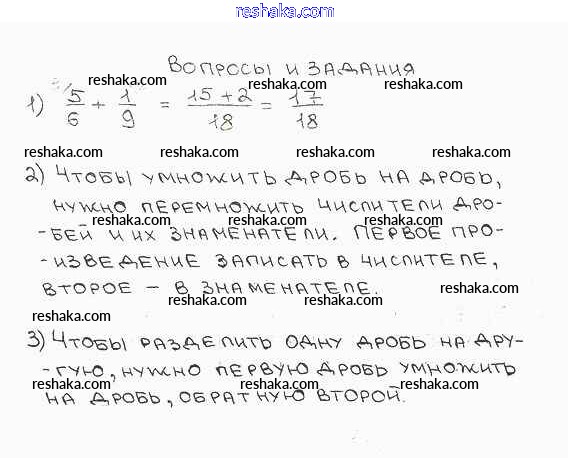 reshaka.com
Вопросы и задания
reshaka.com reshaka.com
1) 5/6 + 1/9 = 15+2/18 = 17/18
reshaka.com reshaka.com
reshaka.com reshaka.com reshaka.com
2) Чтобы умножить дробь на дробь,
reshaka.com reshaka.com
нужно перемножить числители дро-
reshaka.com reshaka.com
-бей и их знаменатели. Первое про-
reshaka.com reshaka.com reshaka.com
-изведение записать в числителе,
второе – в знаменателе.
reshaka.com reshaka.com
reshaka.com
3) Чтобы разделить одну дробь на дру-
reshaka.com reshaka.com reshaka.com
-гую, нужно первую дробь умножить
reshaka.com reshaka.com
на дробь, обратную второй.